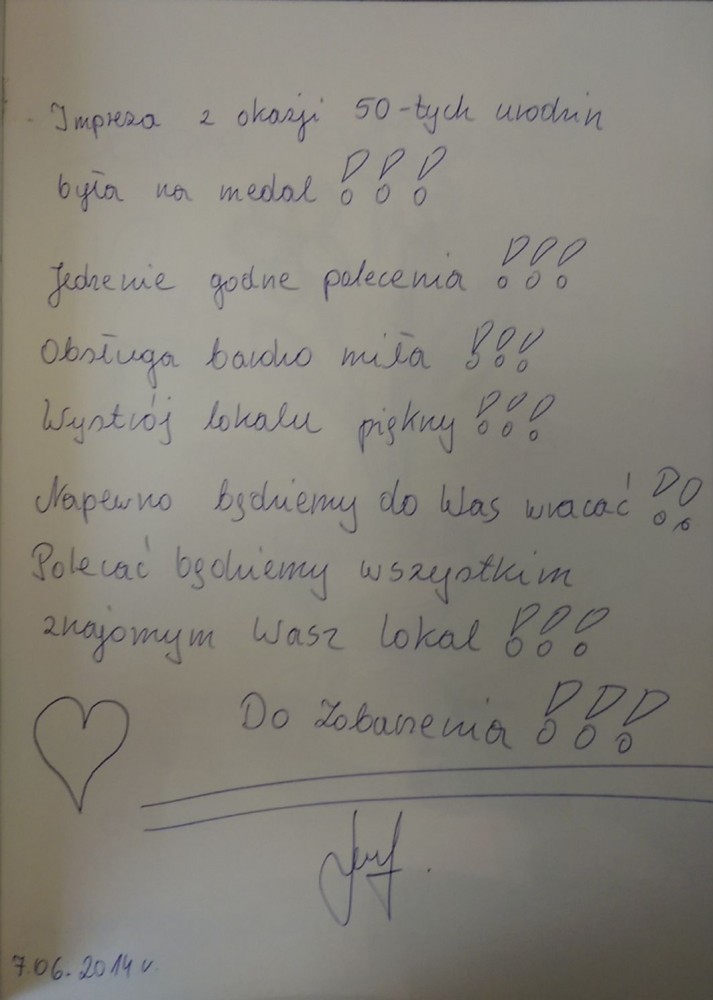 Impreza z okazji 50-tych urodzin
była na medal !!!
Jedzenie godne polecenia !!!
Obsługa bardzo miła !!!
Wystrój lokalu piękny !!!
Napewno będziemy do Was wracać !!
Polecać będziemy wszystkim
znajomym Wasz lokal !!!
Do zobaczenia !!!
7.06.2014 r.